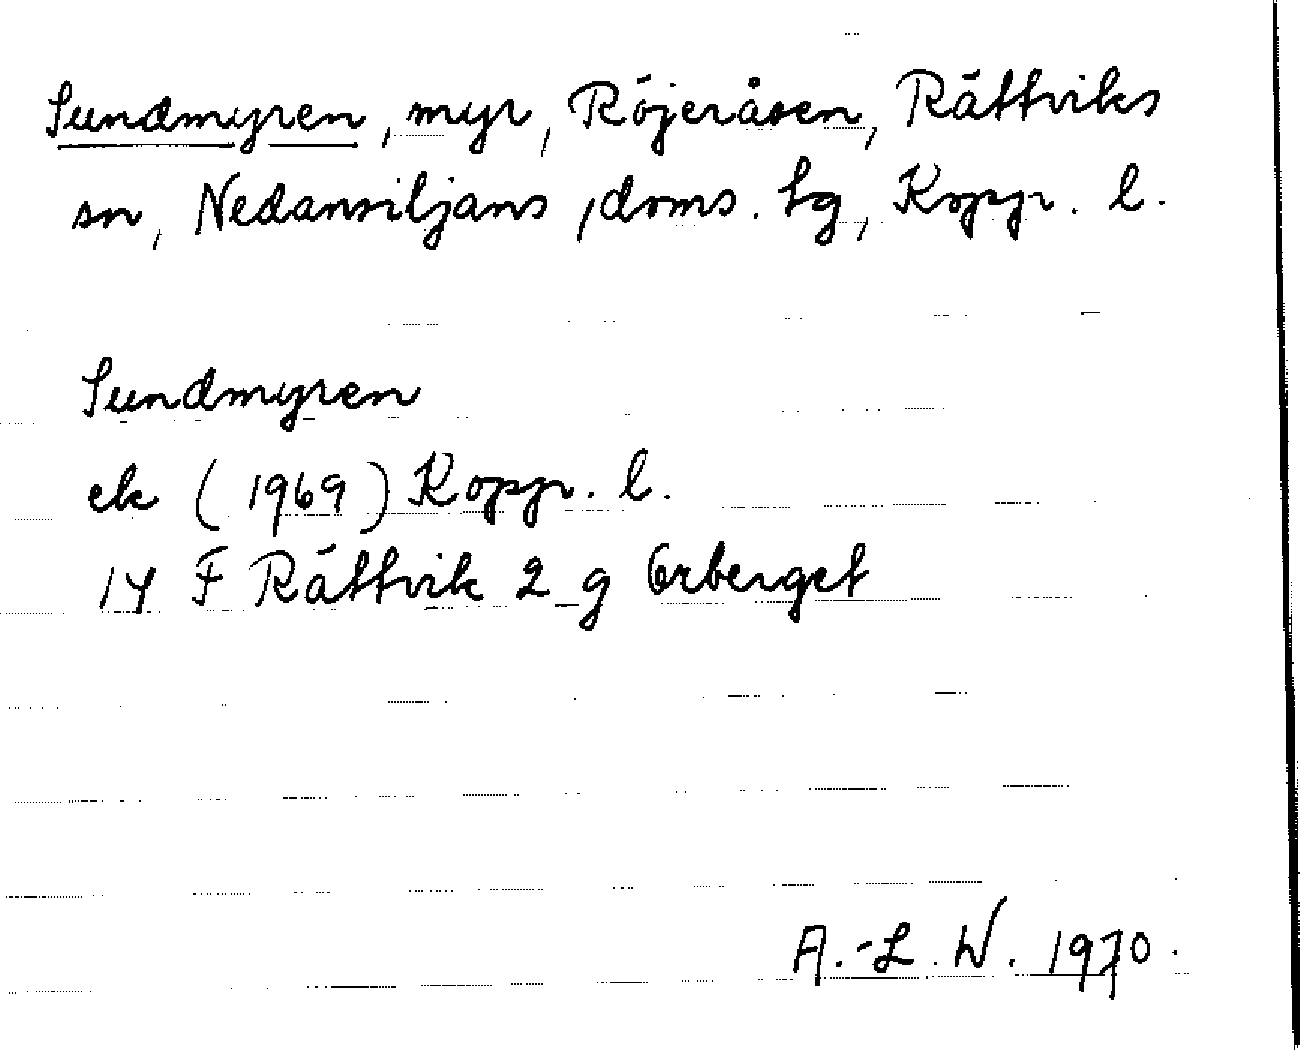 Sundmyren, myr, Röjeråsen, Rättviks
sn, Nedansiljans ,doms. hg, Koppr. l.
Sundmyren
ek (1969) Koppr. l.
14 F Rättvik 2 g Erberget
A.-L. W. 1970.